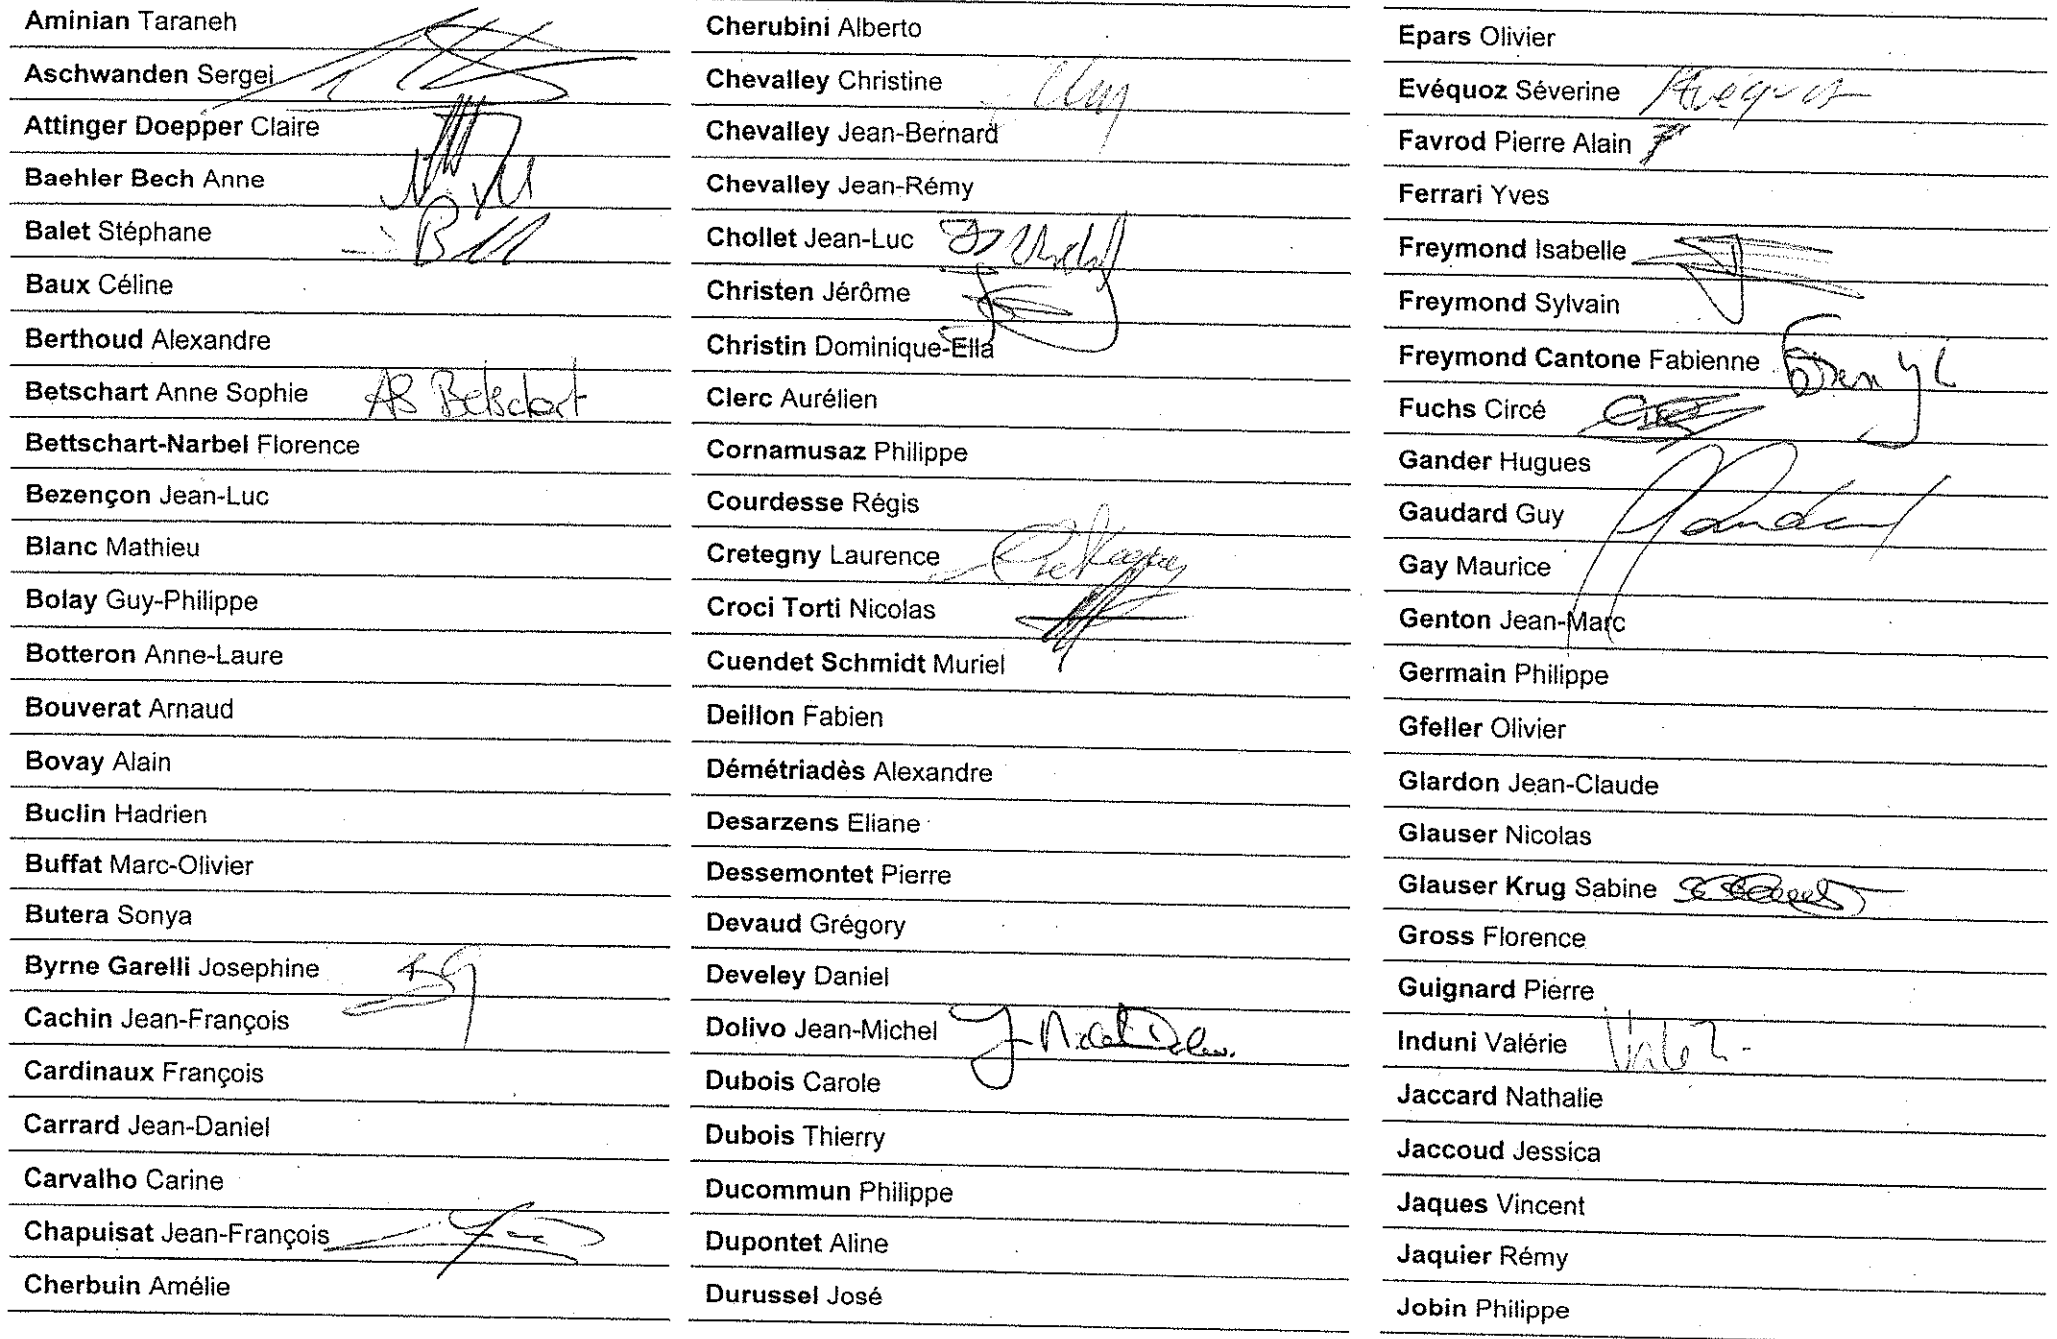 Aminian Taraneh
Aschwanden Sergei
Attinger Doepper Claire
Baehler Bech Anne
Balet Stéphane
Baux Céline
Berthoud Alexandre
Betschart Anne Sophie AS Betschart
Bettschart-Narbel Florence
Bezençon Jean-Luc
Blanc Mathieu
Bolay Guy-Philippe
Botteron Anne-Laure
Bouverat Arnaud
Bovay Alain
Buclin Hadrien
Buffat Marc-Olivier
Butera Sonya
Byrne Garelli Josephine
Cachin Jean-François
Cardinaux François
Carrard Jean-Daniel
Carvalho Carine
Chapuisat Jean-François
Cherbuin Amélie
Cherubini Alberto
Chevalley Christine
Chevalley Jean-Bernard
Chevalley Jean-Rémy
Chollet Jean-Luc
Christen Jérôme
Christin Dominique-Ella
Clerc Aurélien
Cornamusaz Philippe
Courdesse Régis
Cretegny Laurence
Croci Torti Nicolas
Cuendet Schmidt Muriel
Deillon Fabien
Démétriadès Alexandre
Desarzens Eliane
Dessemontet Pierre
Devaud Grégory
Develey Daniel
Dolivo Jean-Michel
Dubois Carole
Dubois Thierry
Ducommun Philippe
Dupontet Aline
Durussel José
Epars Olivier
Evéquoz Séverine
Favrod Pierre Alain
Ferrari Yves
Freymond Isabelle
Freymond Sylvain
Freymond Cantone Fabienne
Fuchs Circé
Gander Hugues
Gaudard Guy
Gay Maurice
Genton Jean-Marc
Germain Philippe
Gfeller Olivier
Glardon Jean-Claude
Glauser Nicolas
Glauser Krug Sabine
Gross Florence
Guignard Pierre
Induni Valérie
Jaccard Nathalie
Jaccoud Jessica
Jaques Vincent
Jaquier Rémy
Jobin Philippe